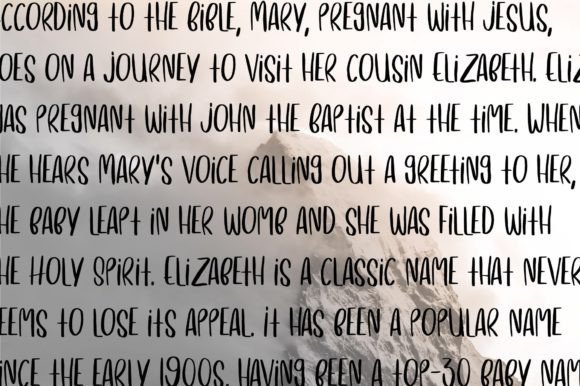 CCORDING TO THE BIBLE, MARY, PREGNANT WITH JESUS,
OES ON A JOURNEY TO VISIT HER COUSIN ELIZABETH. ELIZ
AS PREGNANT WITH JOHN THE BAPTIST AT THE TIME. WHEN
HE HEARS MARY'S VOICE CALLING OUT A GREETING TO HER,
HE BABY LEAPT IN HER WOMB AND SHE WAS FILLED WITH
HE HOLY SPIRIT. ELIZABETH IS A CLASSIC NAME THAT NEVER
EEMS TO LOSE ITS APPEAL. IT HAS BEEN A POPULAR NAME
INCE THE EARLY 1900S. HAVING BEEN A TOP-30 BABY NAM